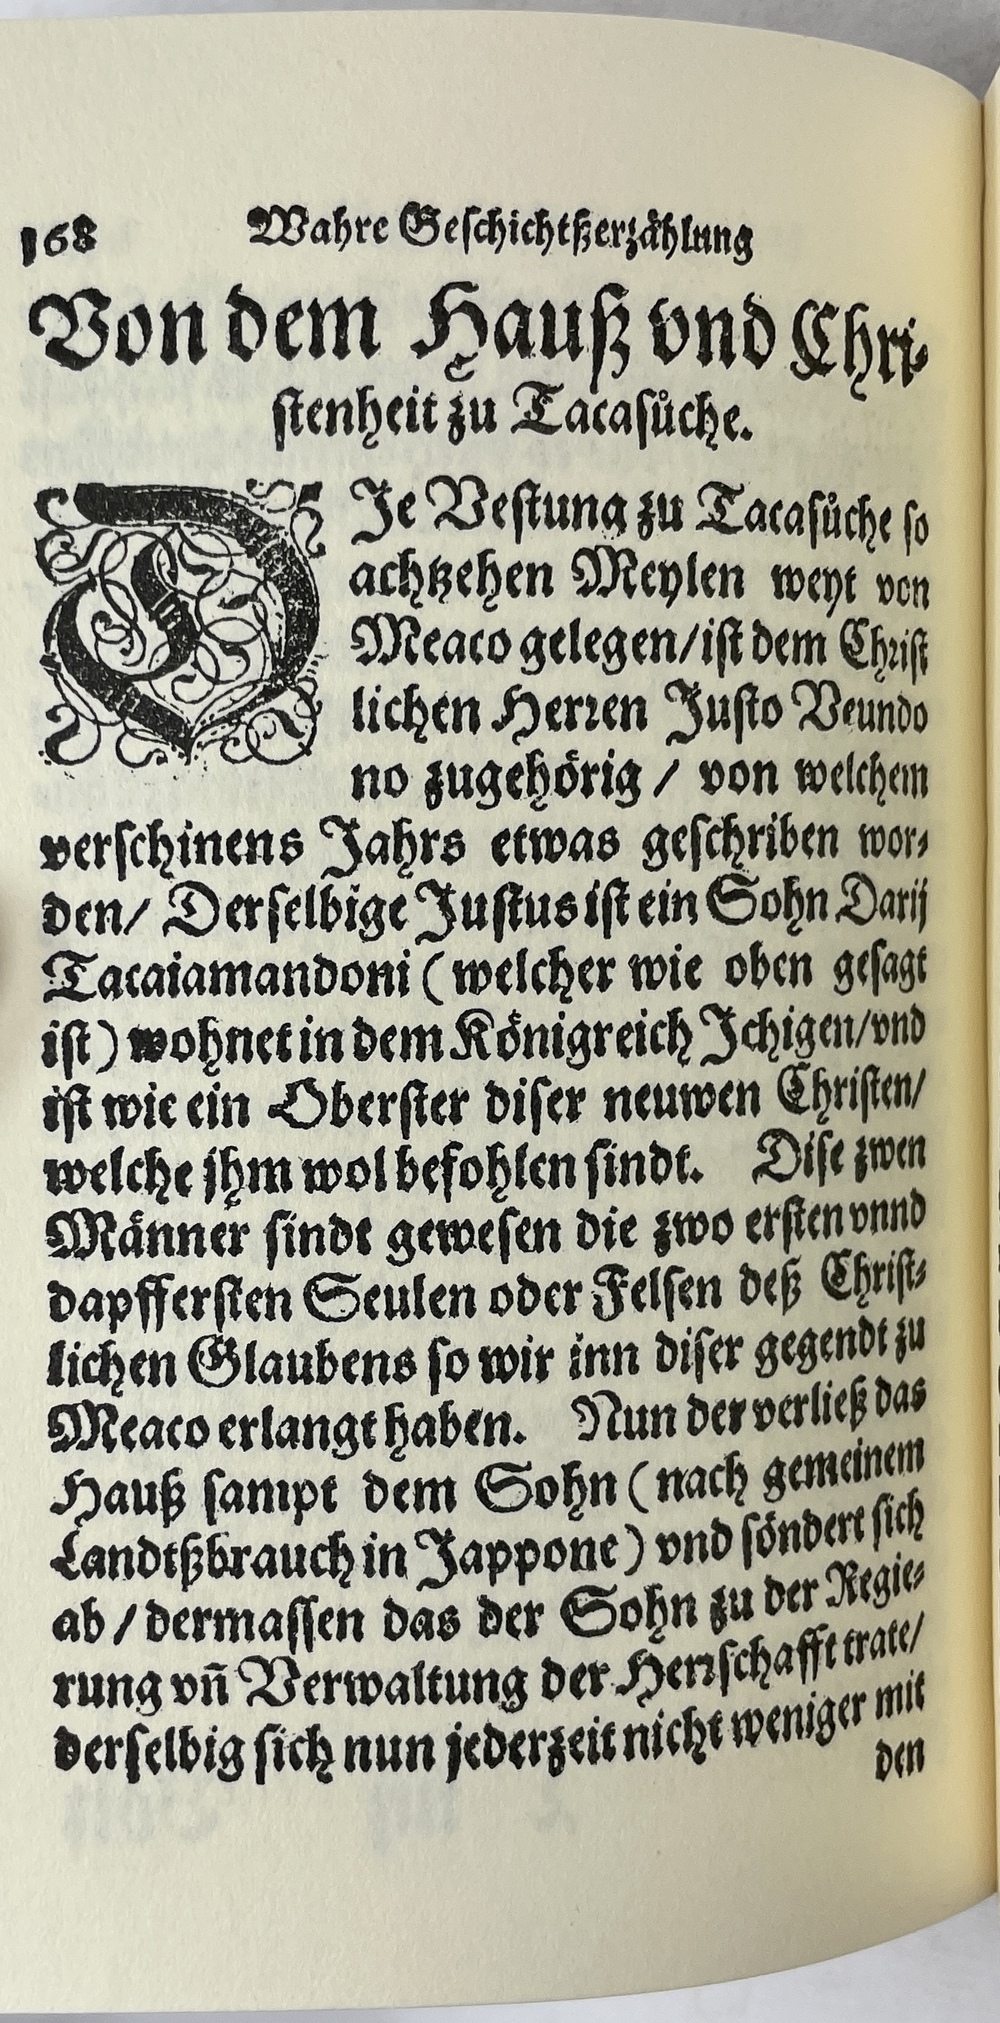 168 Wahre Geschichtßerzählung
Von dem Hauß vnd Chri-
stenheit zu Tacasůche.
DJe Vestung zu Tacasůche so
achtzehen Meylen weyt von
Meaco gelegen/ist dem Christ
lichen Herren Justo Veundo
no zugehörig / von welchem
verschinens Jahrs etwas geschriben wor-
den/ Derselbige Justus ist ein Sohn Darij
Tacaiamandoni ( welcher wie oben gesagt
ist ) wohnet in dem Königreich Jchigen/vnd
ist wie ein Oberster diser neuwen Christen/
welche jhm wol befohlen sindt. Dise zwen
Männer sindt gewesen die zwo ersten vnnd
dapffersten Seulen oder Felsen deß Christ-
lichen Glaubens so wir inn diser gegendt zu
Meaco erlangt haben. Nun der verließ das
Hauß sampt dem Sohn ( nach gemeinem
Landtßbrauch in Jappone ) vnd söndert sich
ab / dermassen das der Sohn zu der Regie-
rung vñ Verwaltung der Herrschafft trate/
derselbig sich nun jederzeit nicht weniger mit
den